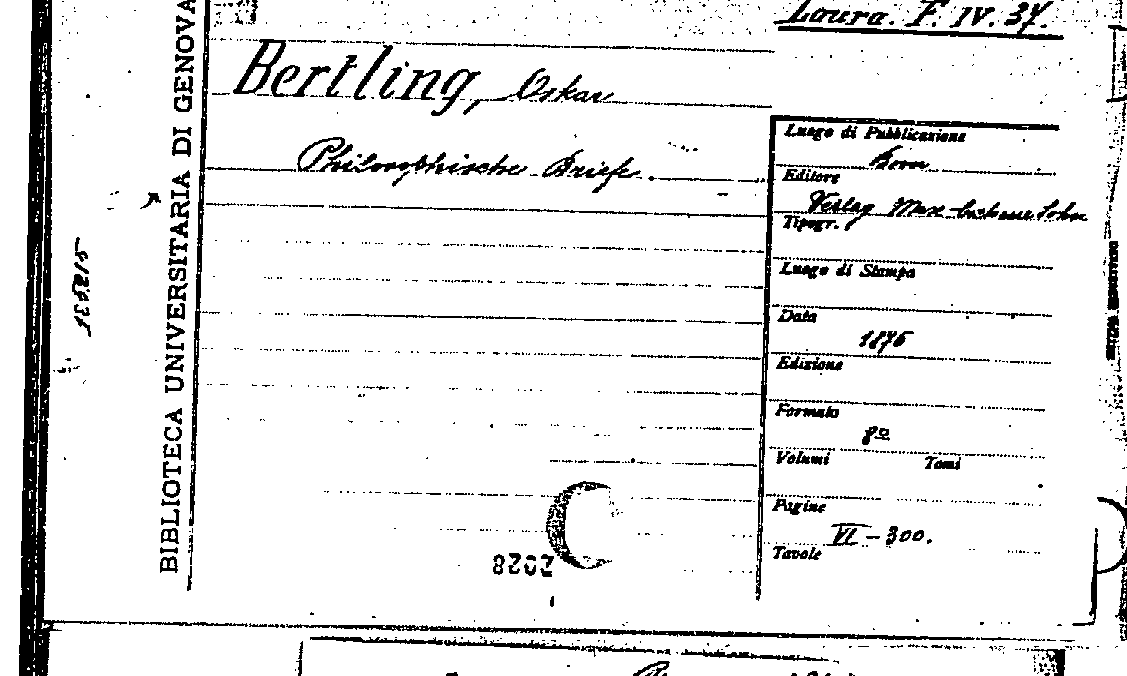 Laura. F. IV. 37.
BIBLIOTECA UNIVERSITARIA DI GENOVA
Bertling, Oskar
Philosophische Briefe.
Luogo di Pubblicazione
Bonn
Editore
Verlag Max Cohen u. Sohn
Tipogr.
Luogo di Stampa
Data
1876
Edizione
Formato
8º
Volumi Tomi
Pagine
VI - 300.
Tavole
2028